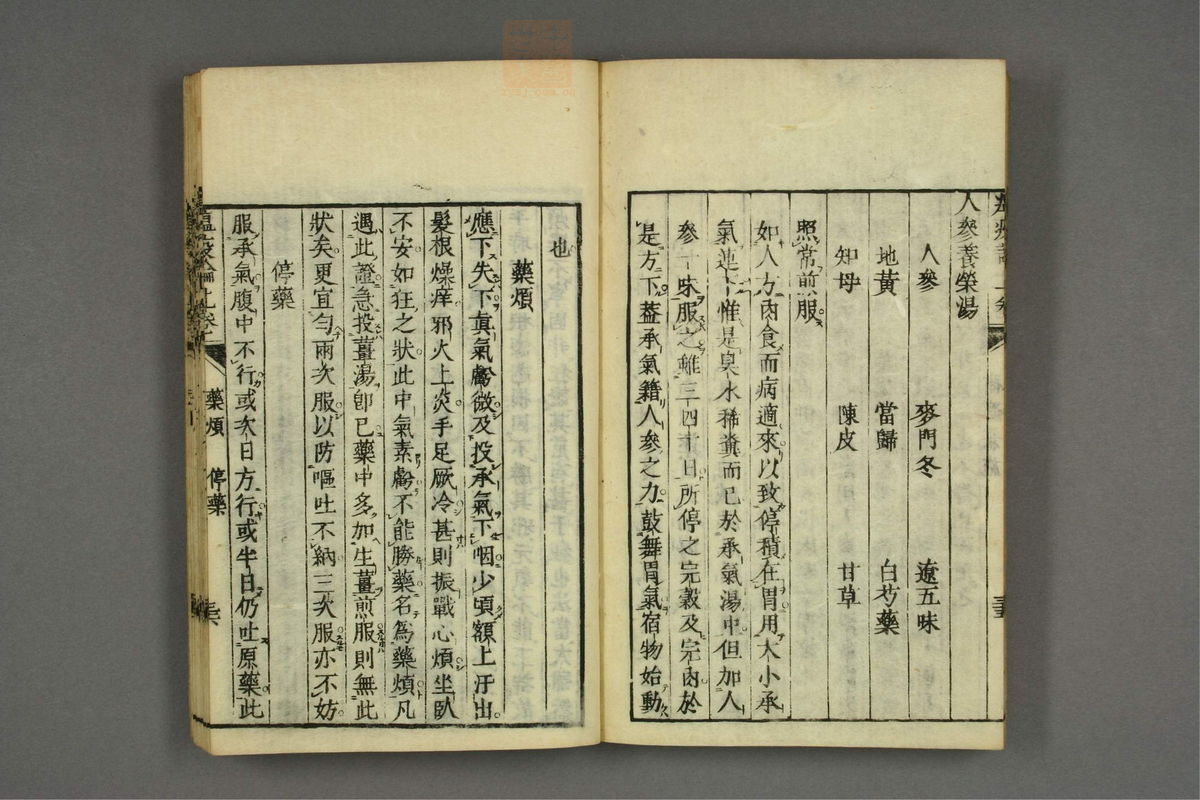 人參養榮湯
人參 麥門冬 遼五味
地黃 當歸 白芍藥
知母 陳皮 甘草
照常煎服
如人方肉食而病適來以致停積在胃用大小承
氣連下惟是臭水稀糞而已於承氣湯中但加人
參一味服之雖三四十日所停之完穀及完肉於
是方下蓋承氣籍人參之力鼓舞胃氣宿物始動
也
藥煩
應下失下眞氣虧微及投承氣下咽少頃額上汗出
髮根燥痒邪火上炎手足厥冷甚則振戰心煩坐臥
不安如狂之狀此中氣素虧不能勝藥名爲藥煩凡
遇此證急投薑湯卽已藥中多加生薑煎服則無此
狀矣更宜勻兩次服以防嘔吐不納三次服亦不妨
停藥
服承氣腹中不行或次日方行或半日仍吐原藥此
藥煩 停藥